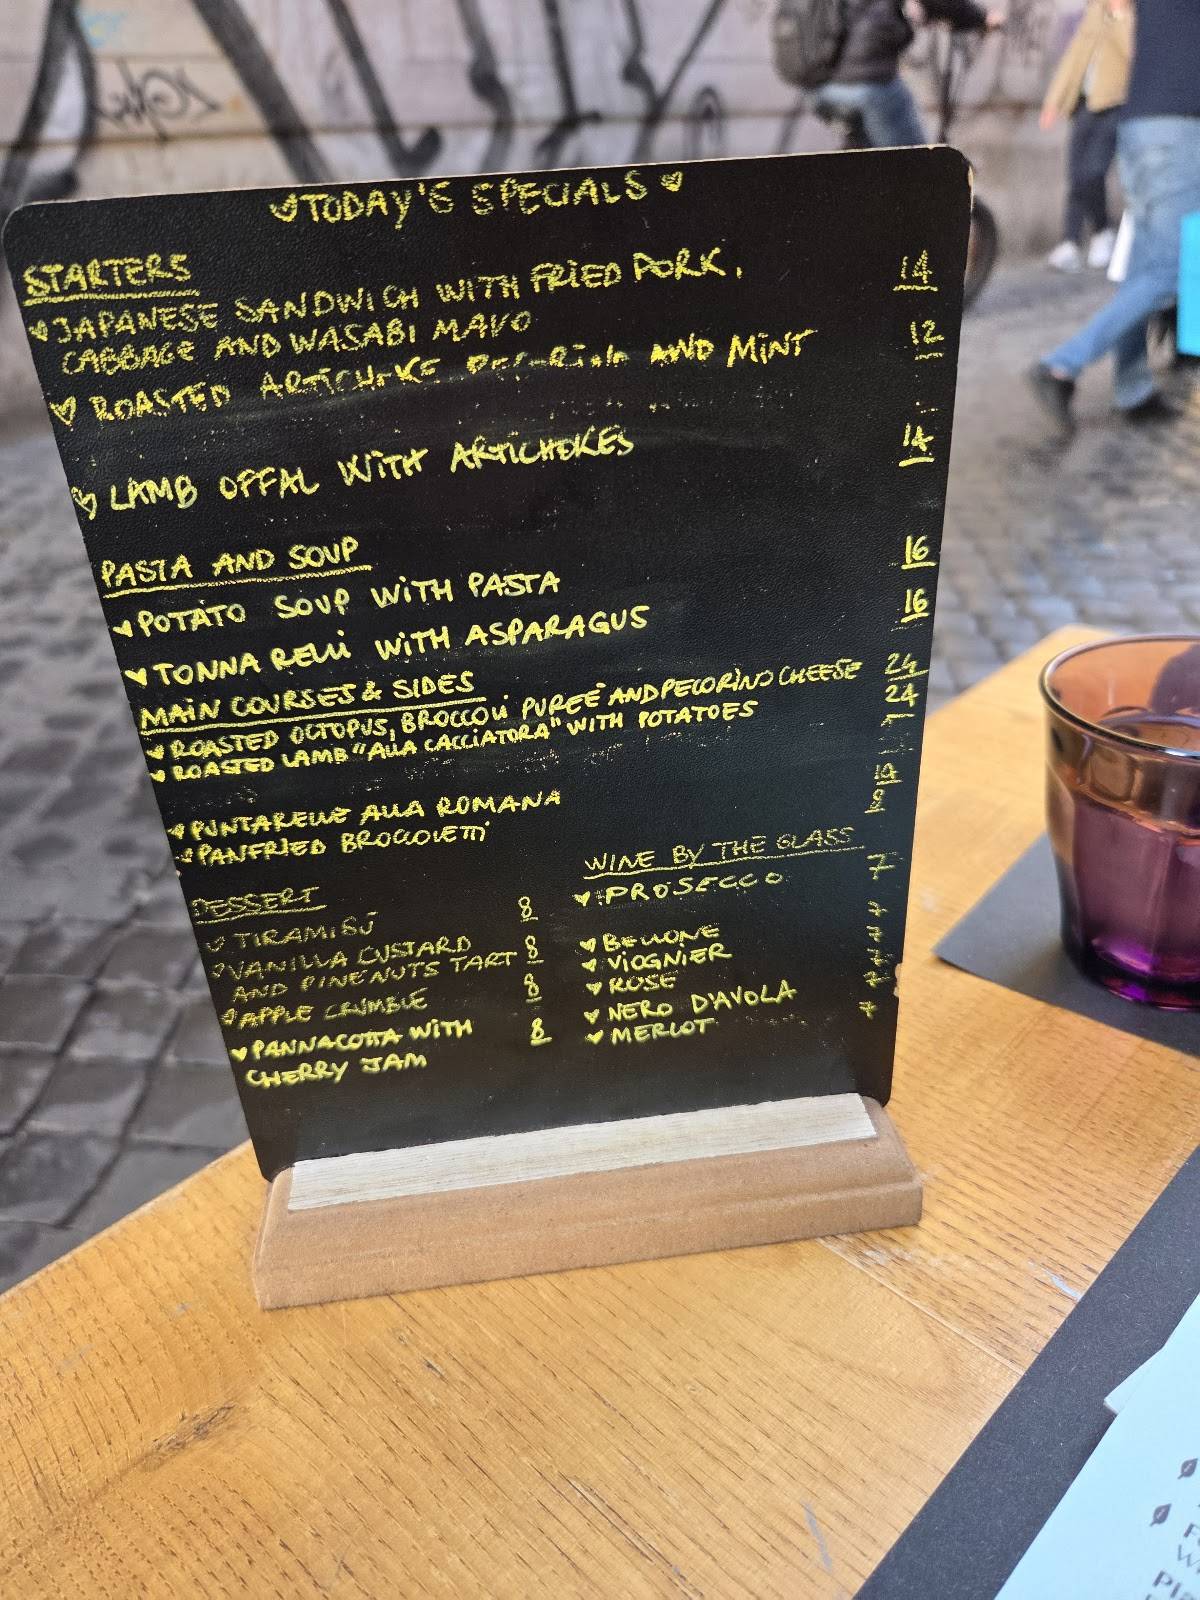 TODAY'S SPECIALS
STARTERS
JAPANESE SANDWICH WITH FRIED PORK, 14
CABBAGE AND WASABI MAYO
ROASTED ARTICHOKE PECORINO AND MINT 12
LAMB OFFAL WITH ARTICHOKES 14
PASTA AND SOUP
POTATO SOUP WITH PASTA 16
TONNARELLI WITH ASPARAGUS 16
MAIN COURSES & SIDES
ROASTED OCTOPUS, BROCCOLI PUREÉ AND PECORINO CHEESE 24
ROASTED LAMB "ALLA CACCIATORA" WITH POTATOES 24
PUNTARELLE ALLA ROMANA
PANFRIED BROCCOLETTI
DESSERT
TIRAMISÙ 8
VANILLA CUSTARD 8
AND PINENUTS TART
APPLE CRUMBLE 8
PANNACOTTA WITH 8
CHERRY JAM
WINE BY THE GLASS
PROSECCO 7
BELLONE 7
VIOGNIER 7
ROSE 7
NERO D'AVOLA 7
MERLOT 7